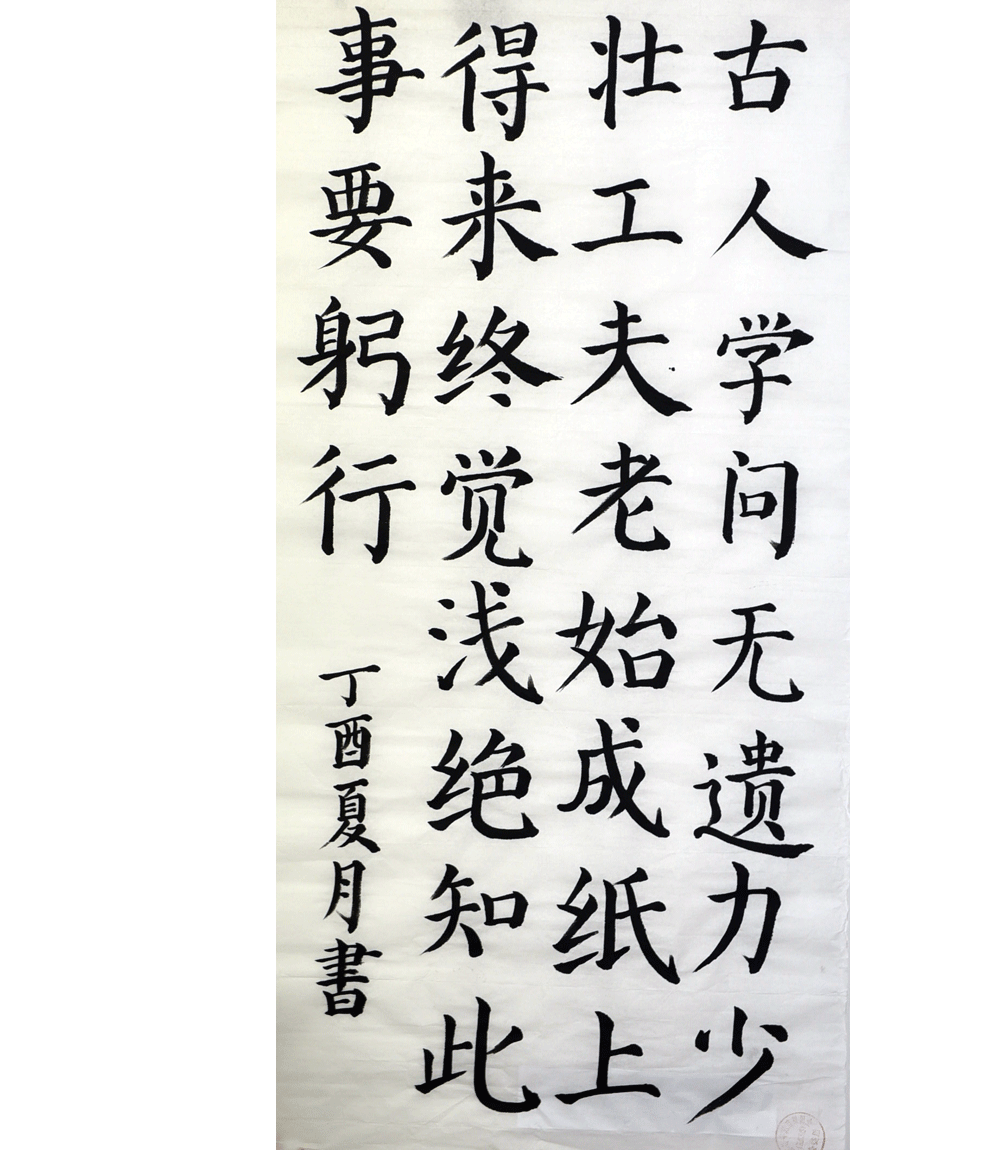 古人学问无遗力少
壮工夫老始成纸上
得来终觉浅绝知此
事要躬行
丁酉夏月書